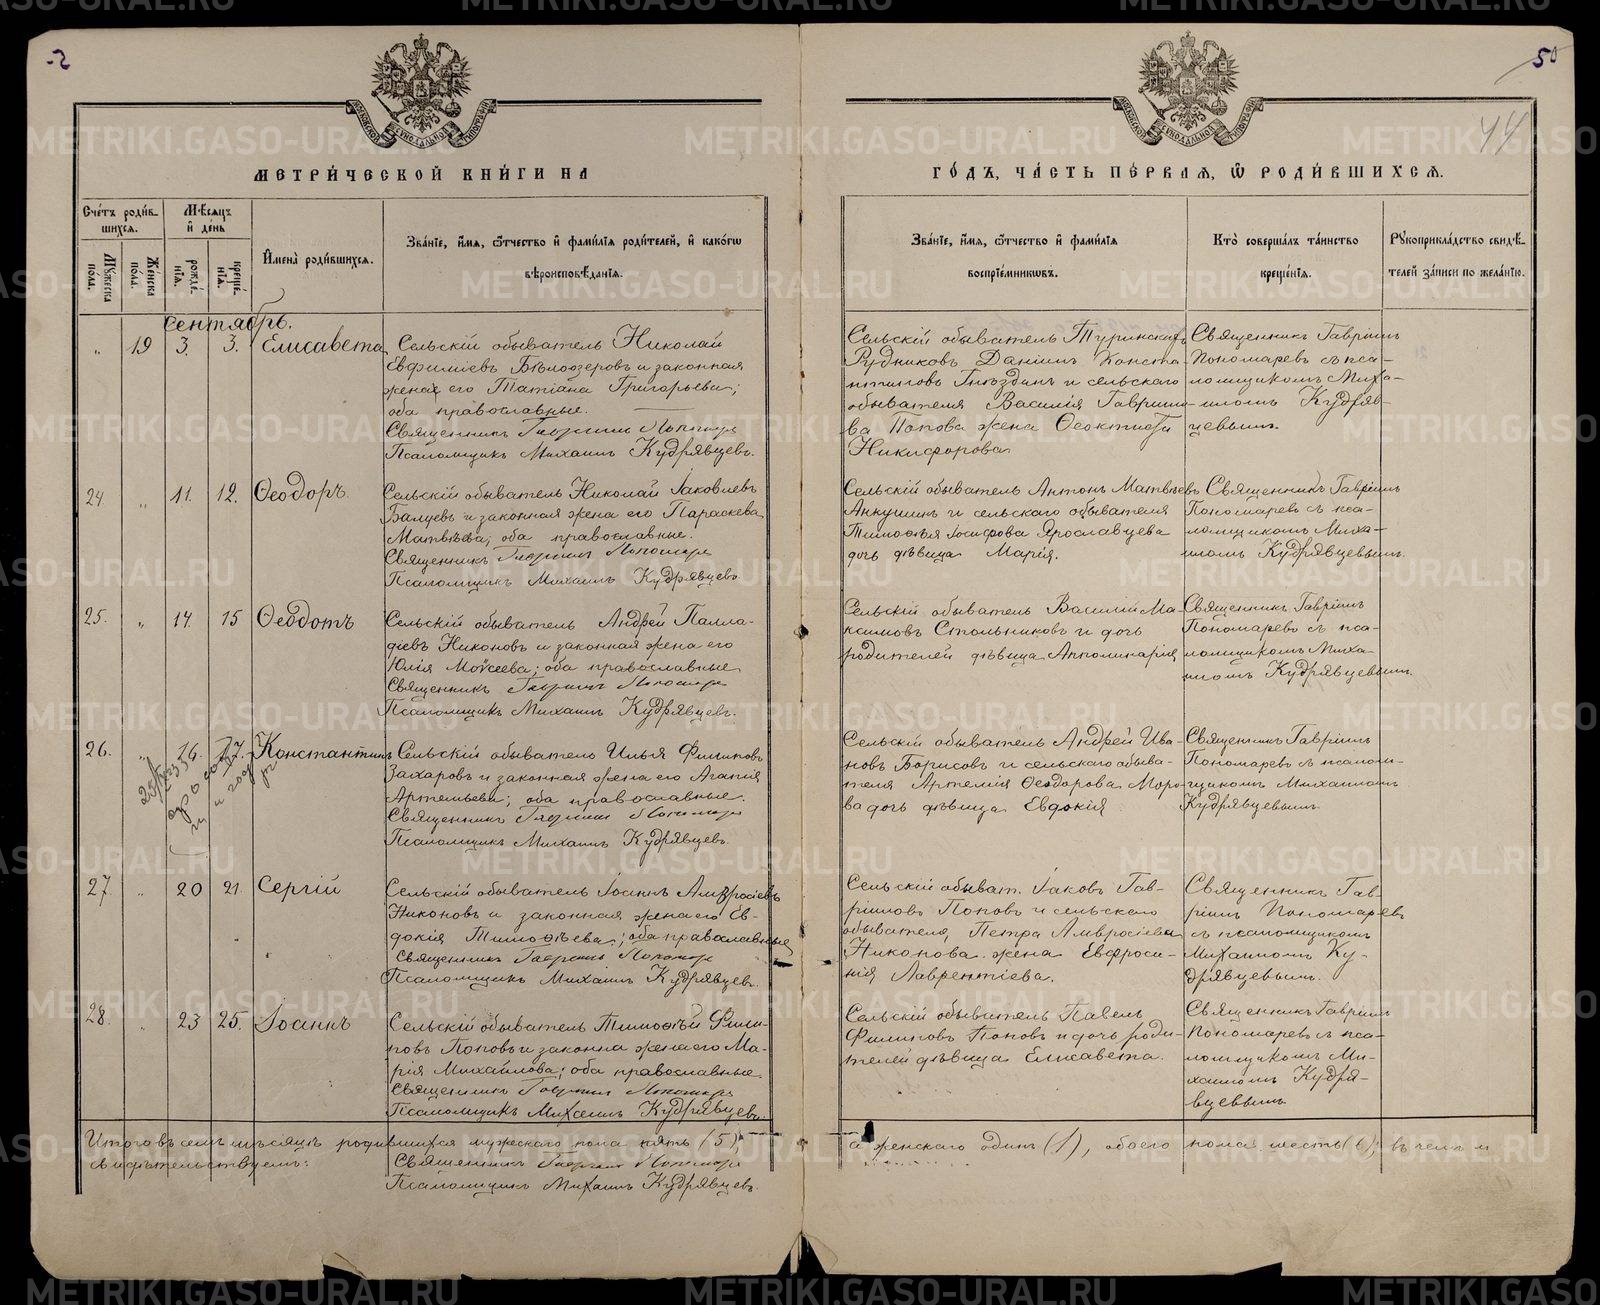 50
44
МЕТРИ́ЧЕСКОЙ КНИ́ГИ НА
ГО́ДЪ, ЧА́СТЬ ПЕ́РВАЯ, Ѽ РОДИ́ВШИХСЯ.
Сче́тъ роди́вшихся.
Мѣсяцъ и де́нь
Имена̀ роди́вшихся.
Зва́нїе, и́мя, ѻ́тчество и фами́лїя роди́телей, и како́гѡ
вѣроисповѣ́данїя.
Му́жеска пола.
Же́нска пола.
рожде́нїя.
креще́нїя.
Зва́нїе, и́мя, ѻ́тчество и фами́лїя
воспрїе́мникѡвъ.
Кто̀ соверша́лъ та́инство
креще́нїя.
Рꙋкоприкла́дство свидѣ́-
телей за́писи по жела́нїю.
Сентябрь.
" 19 3. 3. Елисавета
Сельскій обыватель Николай
Евфиміевъ Бѣлоозеровъ и законная
жена его Татіана Григорьева;
оба православные.
Священникъ Гавріилъ Пономарев
Псаломщикъ Михаилъ Кудрявцевъ.
Сельскій обыватель Туринскихъ
Рудниковъ Даніилъ Конста-
нтиновъ Гнѣздинъ и сельскаго
обывателя Василія Гавріило-
ва Попова жена Ѳеоктиста
Никифорова
Священникъ Гавріилъ
Пономаревъ съ пса-
ломщикомъ Миха-
иломъ Кудряв-
цевымъ.
24 " 11. 12. Ѳеодоръ.
Сельскій обыватель Николай Іаковлевъ
Балуевъ и законная жена его Параскева
Матвѣева; оба православные.
Священникъ Гавріилъ Пономарев
Псаломщикъ Михаилъ Кудрявцевъ
Сельскій обыватель Антонъ Матвѣевъ
Анкушинъ и сельскаго обывателя
Тимоѳея Іосифова Ярославцева
дочь дѣвица Марія.
Священникъ Гавріилъ
Пономаревъ съ пса-
ломщикомъ Миха-
иломъ Кудрявцевымъ.
25. " 14. 15 Ѳеодотъ
Сельскій обыватель Андрей Палла-
діевъ Никоновъ и законная жена его
Юлія Моѵсеева; оба православные
Священникъ Гавріилъ Пономарев
Псаломщикъ Михаилъ Кудрявцевъ.
Сельскій обыватель Василій Ма-
ксимовъ Стольниковъ и дочь
родителей дѣвица Апполинарія
Священникъ Гавріилъ
Пономаревъ съ пса-
ломщикомъ Миха-
иломъ Кудрявцевымъ.
26. " 16. 17. Константинъ
Сельскій обыватель Илья Филиповъ
Захаровъ и законная жена его Агапія
Артемьева; оба православные.
Священникъ Гавріилъ Пономарев
Псаломщикъ Михаилъ Кудрявцевъ.
Сельскій обыватель Андрей Ива-
новъ Борисовъ и сельскаго обыва-
теля Артемія Ѳеодорова Моро-
ва дочь дѣвица Евдокія
Священникъ Гавріилъ
Пономаревъ съ псалом-
щикомъ Михаиломъ
Кудрявцевымъ.
27. " 20 21. Сергій
Сельскій обыватель Іоаннъ Амвросіевъ
Никоновъ и законная жена его Ев-
докія Тимоѳѣева; оба православные
Священникъ Гавріилъ Пономарев
Псаломщикъ Михаилъ Кудрявцевъ.
Сельскій обыват. Іаковъ Гав-
ріиловъ Поповъ и сельскаго
обывателя, Петра Амвросіева
Никонова жена Евфроси-
нія Лаврентіева.
Священникъ Гав-
ріилъ Пономаревъ
съ псаломщикомъ
Михаиломъ Ку-
дрявцевымъ.
28. " 23 25. Іоаннъ
Сельскій обыватель Тимоѳѣй Фили-
повъ Поповъ и законна жена его Ма-
рія Михайлова; оба православные.
Священникъ Гавріилъ Пономарев
Псаломщикъ Михаилъ Кудрявцевъ.
Сельскій обыватель Павелъ
Филиповъ Поповъ и дочь роди-
телей дѣвица Елисавета.
Священникъ Гавріилъ
Пономаревъ съ пса-
ломщикомъ Ми-
хаиломъ Кудря-
вцевымъ
Итого въ семъ мѣсяцѣ родившихся мужескаго пола пять (5),
а женскаго одинъ (1), обоего пола шесть (6); въ чемъ и
свидѣтельствуемъ:
Священникъ Гавріилъ Пономарев
Псаломщикъ Михаилъ Кудрявцевъ.
METRIKI.GASO-URAL.RU